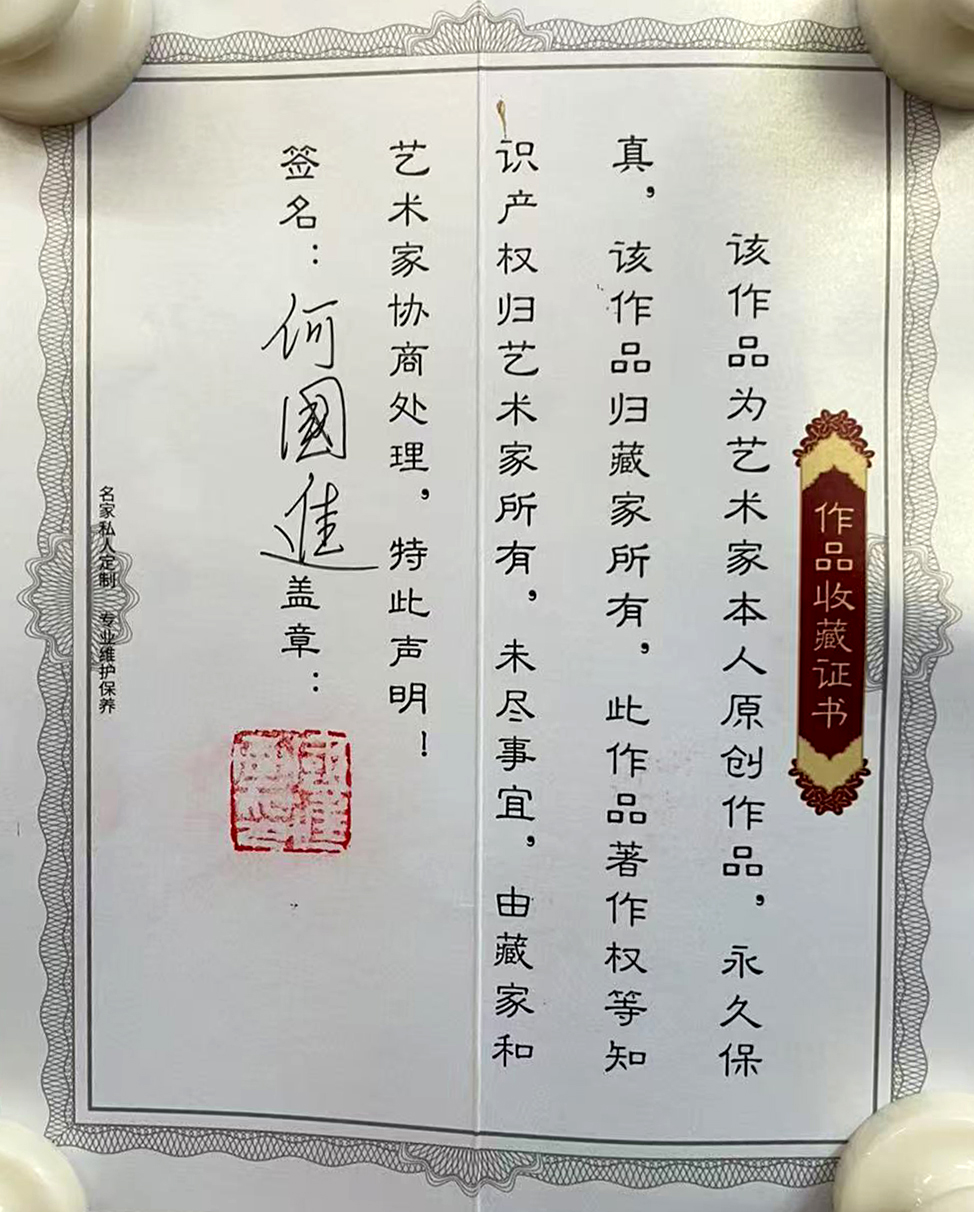 作品收藏证书
该作品为艺术家本人原创作品，永久保
真，该作品归藏家所有，此作品著作权等知
识产权归艺术家所有，未尽事宜，由藏家和
艺术家协商处理，特此声明！
签名：何國進盖章：
名家私人定制 专业维护保养